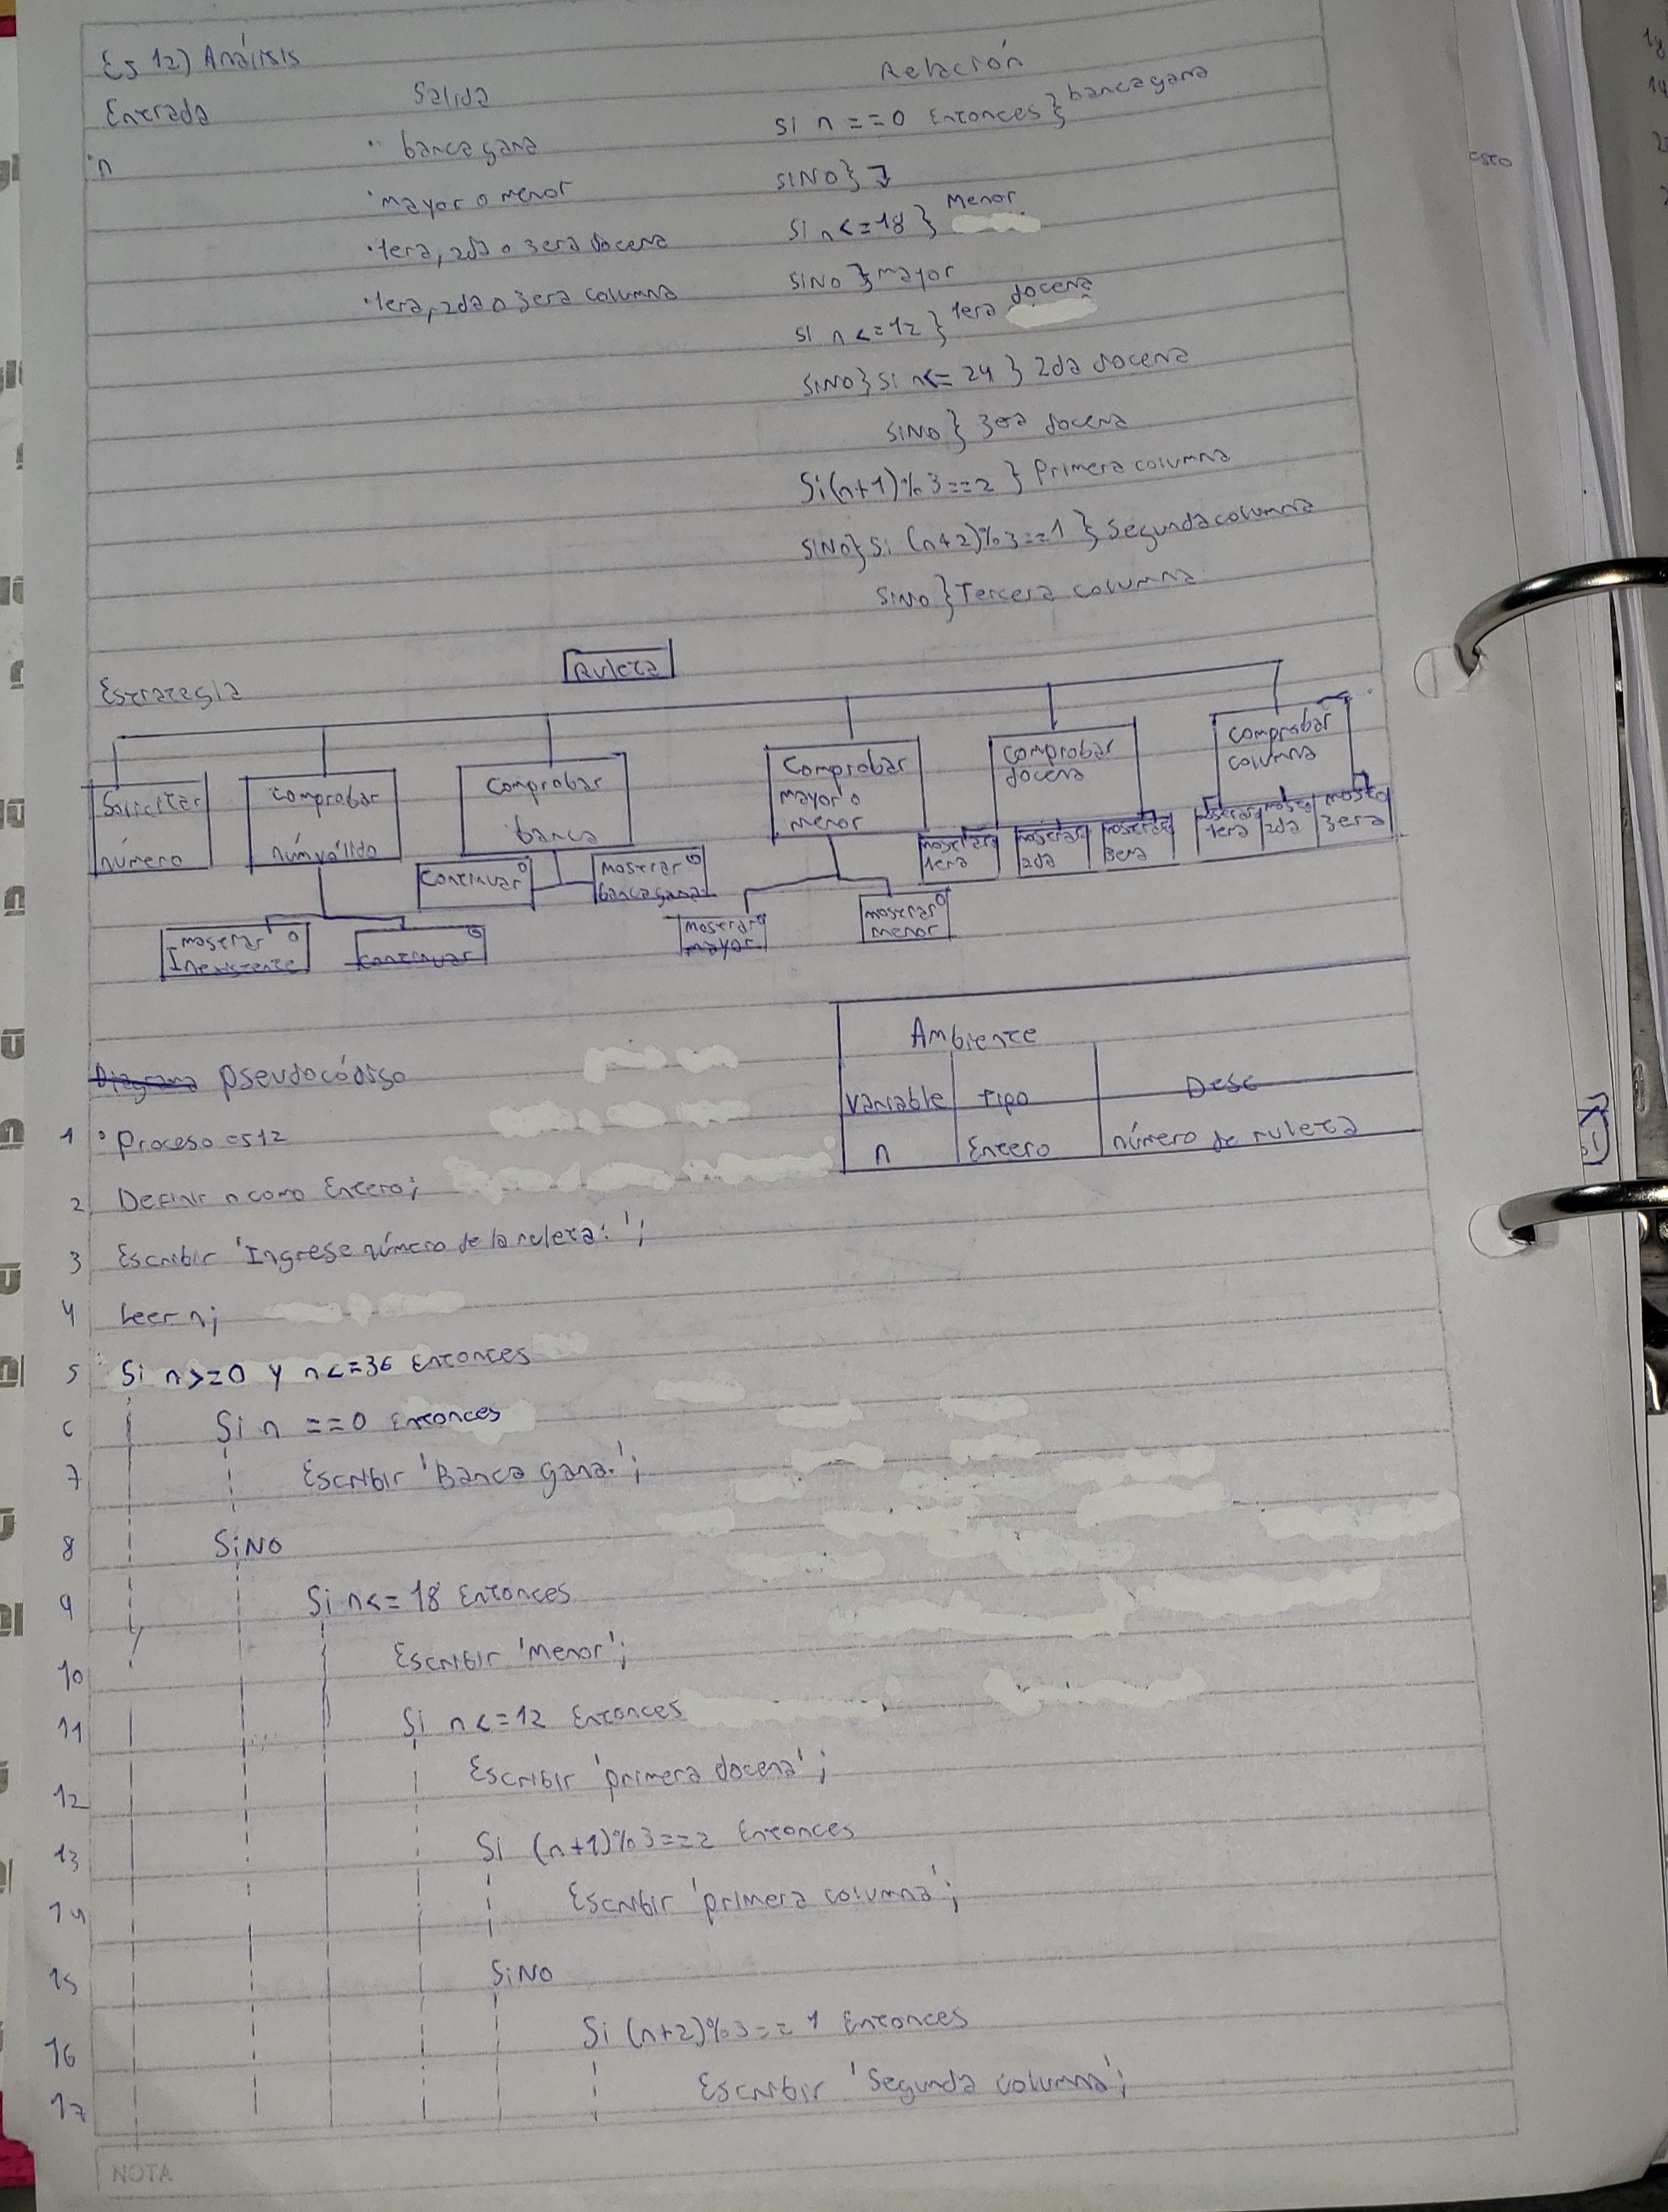 Ej 12) Análisis
Entrada Salida Relación
·n
·· banca gana
·mayor o menor
·1era, 2da o 3era docena
·1era, 2da o 3era columna
Si n ==0 Entonces } banca gana
SINO}
Si n<=18 } Menor
SINO } mayor
Si n <=12 } 1era docena
SINO} Si n<= 24 } 2da docena
SINO } 3era docena
Si(n+1)%3==2 } Primera columna
SINO} Si (n+2)%3==1 } Segunda columna
SINO } Tercera columna
Estrategia
Ruleta
Solicitar número
comprobar núm válido
comprobar banca
Comprobar mayor o menor
comprobar docena
comprobar columna
mostrar Inexistente
continuar
continuar
mostrar banca gana
mostrar mayor
mostrar menor
mostrar 1era
mostrar 2da
mostrar 3era
mostrar 1era
mostrar 2da
mostrar 3era
Diagrama pseudocódigo
Ambiente
Variable Tipo Desc
n Entero número de ruleta
1 · Proceso ej12
2 Definir n como Entero;
3 Escribir 'Ingrese número de la ruleta: ';
4 Leer n;
5 Si n>=0 y n<=36 Entonces
6 Si n ==0 Entonces
7 Escribir 'Banca gana.';
8 SiNo
9 Si n<= 18 Entonces
10 Escribir 'Menor';
11 Si n <=12 Entonces
12 Escribir 'primera docena';
13 Si (n+1)%3==2 Entonces
14 Escribir 'primera columna';
15 SiNo
16 Si (n+2)%3==1 Entonces
17 Escribir 'Segunda columna';
NOTA